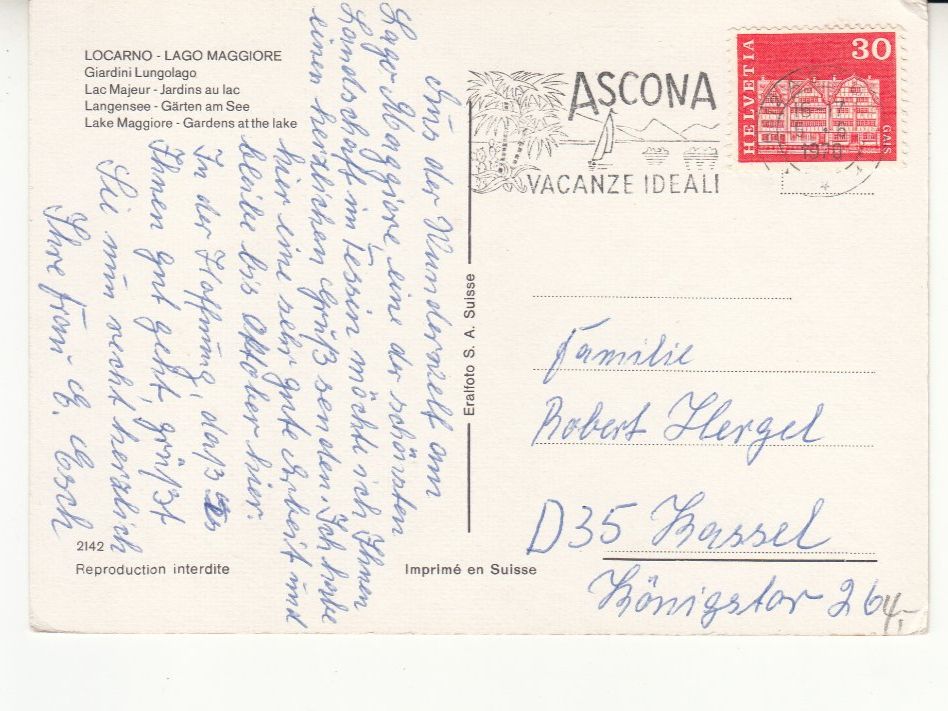 LOCARNO - LAGO MAGGIORE
Giardini Lungolago
Lac Majeur - Jardins au lac
Langensee - Gärten am See
Lake Maggiore - Gardens at the lake
ASCONA
VACANZE IDEALI
HELVETIA
30
GAIS
1970
Aus der Wunderwelt am
Lago-Maggiore eine der schönsten
Landschaft im Tessin möchte ich Ihnen
einen herzlichen Gruß senden. Ich habe
hier eine sehr gute Arbeit und
bleibe bis Oktober hier.
In der Hoffnung, daß es
Ihnen gut geht, grüßt
Sie nun recht herzlich
Ihre Frau E. Esch
Eralfoto S. A. Suisse
Familie
Robert Hergel
D35 Kassel
Königstor 26
4,-
2142
Reproduction interdite
Imprimé en Suisse